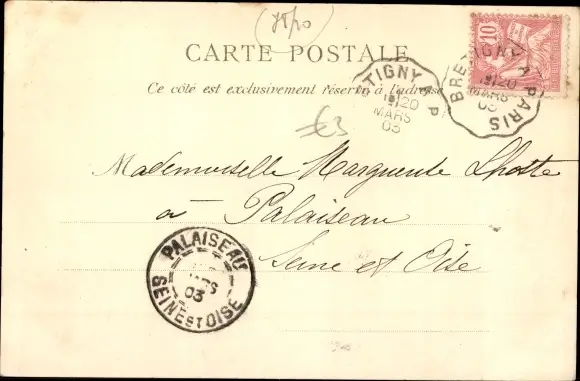 CARTE POSTALE
Ce côté est exclusivement réservé à l'adresse
10
BRETIGNY A PARIS
20
MARS
03
TIGNY A P
20
MARS
03
€3
Mademoiselle Marguerite Lhoste
à Palaiseau
Seine et Oise
PALAISEAU
MARS
03
SEINE ET OISE